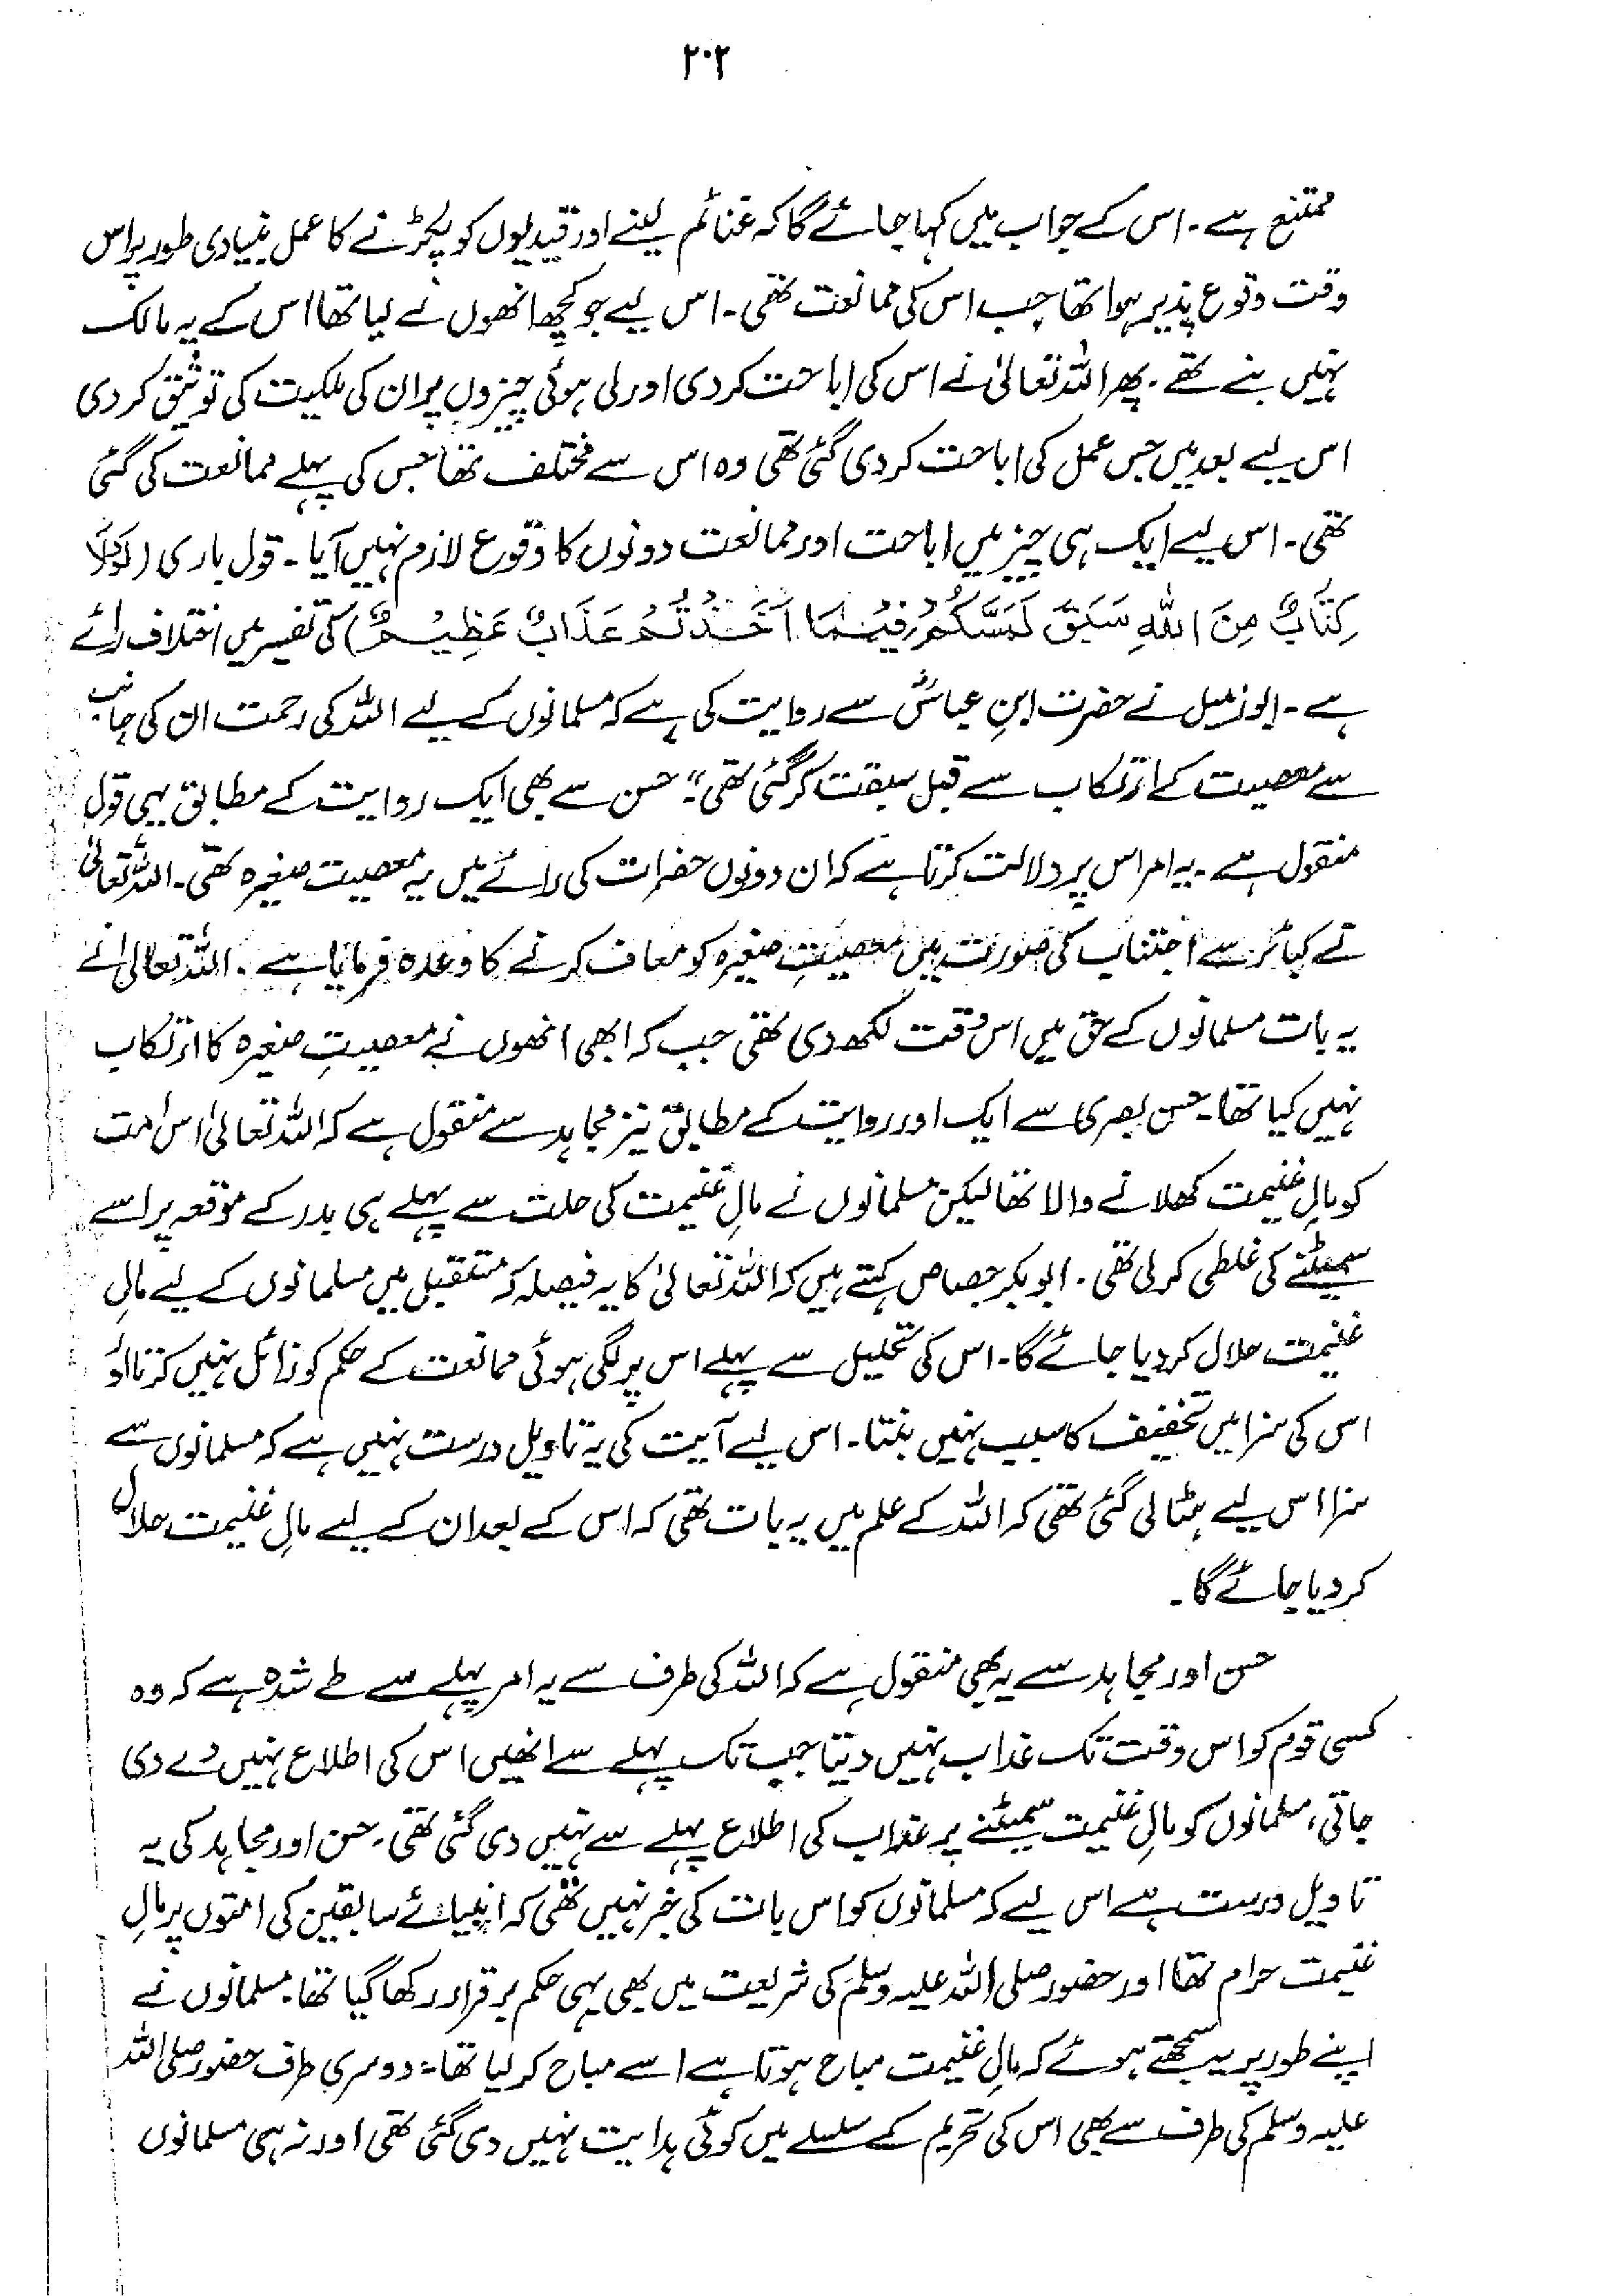 ۲۰۲
ممتنع ہے۔ اس کے جواب میں کہا جائے گا کہ غنائم لینے اور قیدیوں کو پکڑنے کا عمل بنیادی طور پر اس
وقت وقوع پذیر ہوا تھا جب اس کی ممانعت تھی۔ اس لیے جو کچھ انھوں نے لیا تھا اس کے یہ مالک
نہیں بنے تھے۔ پھر اللہ تعالیٰ نے اس کی اباحت کر دی اور لی ہوئی چیزوں پر ان کی ملکیت کی توثیق کر دی
اس لیے بعد میں جس عمل کی اباحت کر دی گئی تھی وہ اس سے مختلف تھا جس کی پہلے ممانعت کی گئی
تھی۔ اس لیے ایک ہی چیز میں اباحت اور ممانعت دونوں کا وقوع لازم نہیں آیا۔ قول باری (لَوْلَا
كِتَابٌ مِنَ اللّٰهِ سَبَقَ لَمَسَّكُمْ فِيْمَا اَخَذْتُمْ عَذَابٌ عَظِيْمٌ) کی تفسیر میں اختلاف رائے
ہے۔ ابوزمیل نے حضرت ابنِ عباسؓ سے روایت کی ہے کہ مسلمانوں کے لیے اللہ کی رحمت ان کی جانب
سے معصیت کے ارتکاب سے قبل سبقت کر گئی تھی"۔ حسن سے بھی ایک روایت کے مطابق یہی قول
منقول ہے۔ یہ امر اس پر دلالت کرتا ہے کہ ان دونوں حضرات کی رائے میں یہ معصیت صغیرہ تھی۔ اللہ تعالیٰ
نے کبائر سے اجتناب کی صورت میں معصیتِ صغیرہ کو معاف کرنے کا وعدہ فرمایا ہے۔ اللہ تعالیٰ نے
یہ بات مسلمانوں کے حق میں اس وقت لکھ دی تھی جب کہ ابھی انھوں نے معصیتِ صغیرہ کا ارتکاب
نہیں کیا تھا۔ حسن بصری سے ایک اور روایت کے مطابق نیز مجاہد سے منقول ہے کہ اللہ تعالیٰ اس امت
کو مالِ غنیمت کھلانے والا تھا لیکن مسلمانوں نے مالِ غنیمت کی حلت سے پہلے ہی بدر کے موقعہ پر اسے
سمیٹنے کی غلطی کر لی تھی۔ ابوبکر جصاص کہتے ہیں کہ اللہ تعالیٰ کا یہ فیصلہ کہ مستقبل میں مسلمانوں کے لیے مالِ
غنیمت حلال کر دیا جائے گا۔ اس کی تحلیل سے پہلے اس پر لگی ہوئی ممانعت کے حکم کو زائل نہیں کرتا اور
اس کی سزا میں تخفیف کا سبب نہیں بنتا۔ اس لیے آیت کی یہ تاویل درست نہیں ہے کہ مسلمانوں سے
سزا اس لیے ہٹا لی گئی تھی کہ اللہ کے علم میں یہ بات تھی کہ اس کے بعد ان کے لیے مالِ غنیمت حلال
کر دیا جائے گا۔
حسن اور مجاہد سے یہ بھی منقول ہے کہ اللہ کی طرف سے یہ امر پہلے سے طے شدہ ہے کہ وہ
کسی قوم کو اس وقت تک عذاب نہیں دیتا جب تک پہلے سے انھیں اس کی اطلاع نہیں دے دی
جاتی، مسلمانوں کو مالِ غنیمت سمیٹنے پر عذاب کی اطلاع پہلے سے نہیں دی گئی تھی۔ حسن اور مجاہد کی یہ
تاویل درست ہے اس لیے کہ مسلمانوں کو اس بات کی خبر نہیں تھی کہ انبیائے سابقین کی امتوں پر مالِ
غنیمت حرام تھا اور حضور صلی اللہ علیہ وسلم کی شریعت میں بھی یہی حکم برقرار رکھا گیا تھا۔ مسلمانوں نے
اپنے طور پر یہ سمجھتے ہوئے کہ مالِ غنیمت مباح ہوتا ہے اسے مباح کر لیا تھا۔ دوسری طرف حضور صلی اللہ
علیہ وسلم کی طرف سے بھی اس کی تحریم کے سلسلے میں کوئی ہدایت نہیں دی گئی تھی اور نہ ہی مسلمانوں